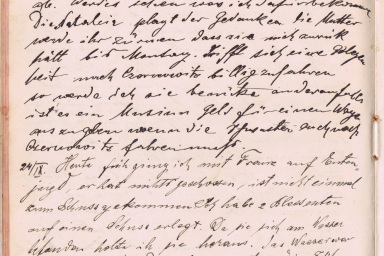 ab. Werden sehen was ich dafür bekomme
Die Natalein plagt der Gedanken die Mutter
werde ihr zürnen dass sie mich zurück
hält bis Montag. Trifft sich eine Gelegen
heit nach Czernowitz billig zufahren
so werde ich sie benütze anderenfalls
ist es ein Geld für einen Wagen
auszugeben wenn die nach
Czernowitz fahren muss.
24/IX. Heute früh gieng ich mit Franz auf Enten-
jagd, er hat nichts geschossen, ist nicht einmal
zum Schuss gekommen Ich habe 2 Blessenten
auf einen Schuss erlegt. Da sie sich am Wasser
befanden holte ich sie heraus. Das Wasser war